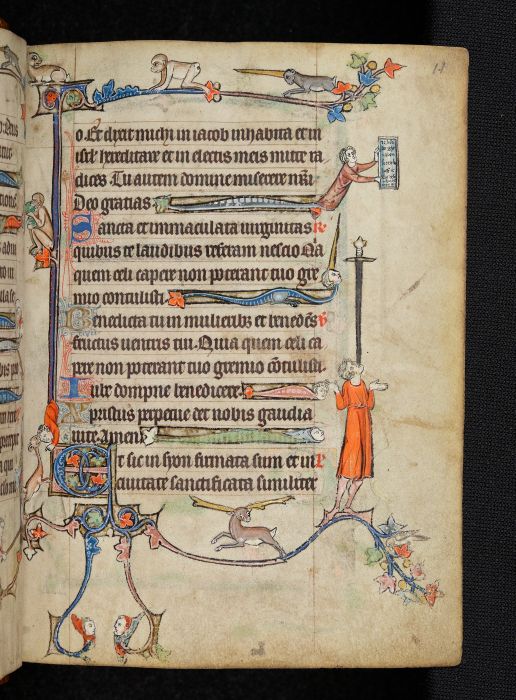 o. Et dixit michi in iacob inhabita et in
isrl hereditare et in electis meis mitte ra
dices. Tu autem domine miserere nr̄i.
Deo gratias
Sancta et immaculata virginitas R
quibus te laudibus referam nescio Q̄a
quem celi capere non poterant tuo gre
mio contulisti.
Benedicta tu in mulieribꝫ et bened̄cs v
fructus uentris tui. Quia quem celi ca
pere non poterant tuo gremio cōtulisti.
Iube dompne benedicere.
Xpristus perpetue det nobis gaudia
uite. Amen.
Et sic in syon firmata sum et in
ciuitate sanctificata similiter